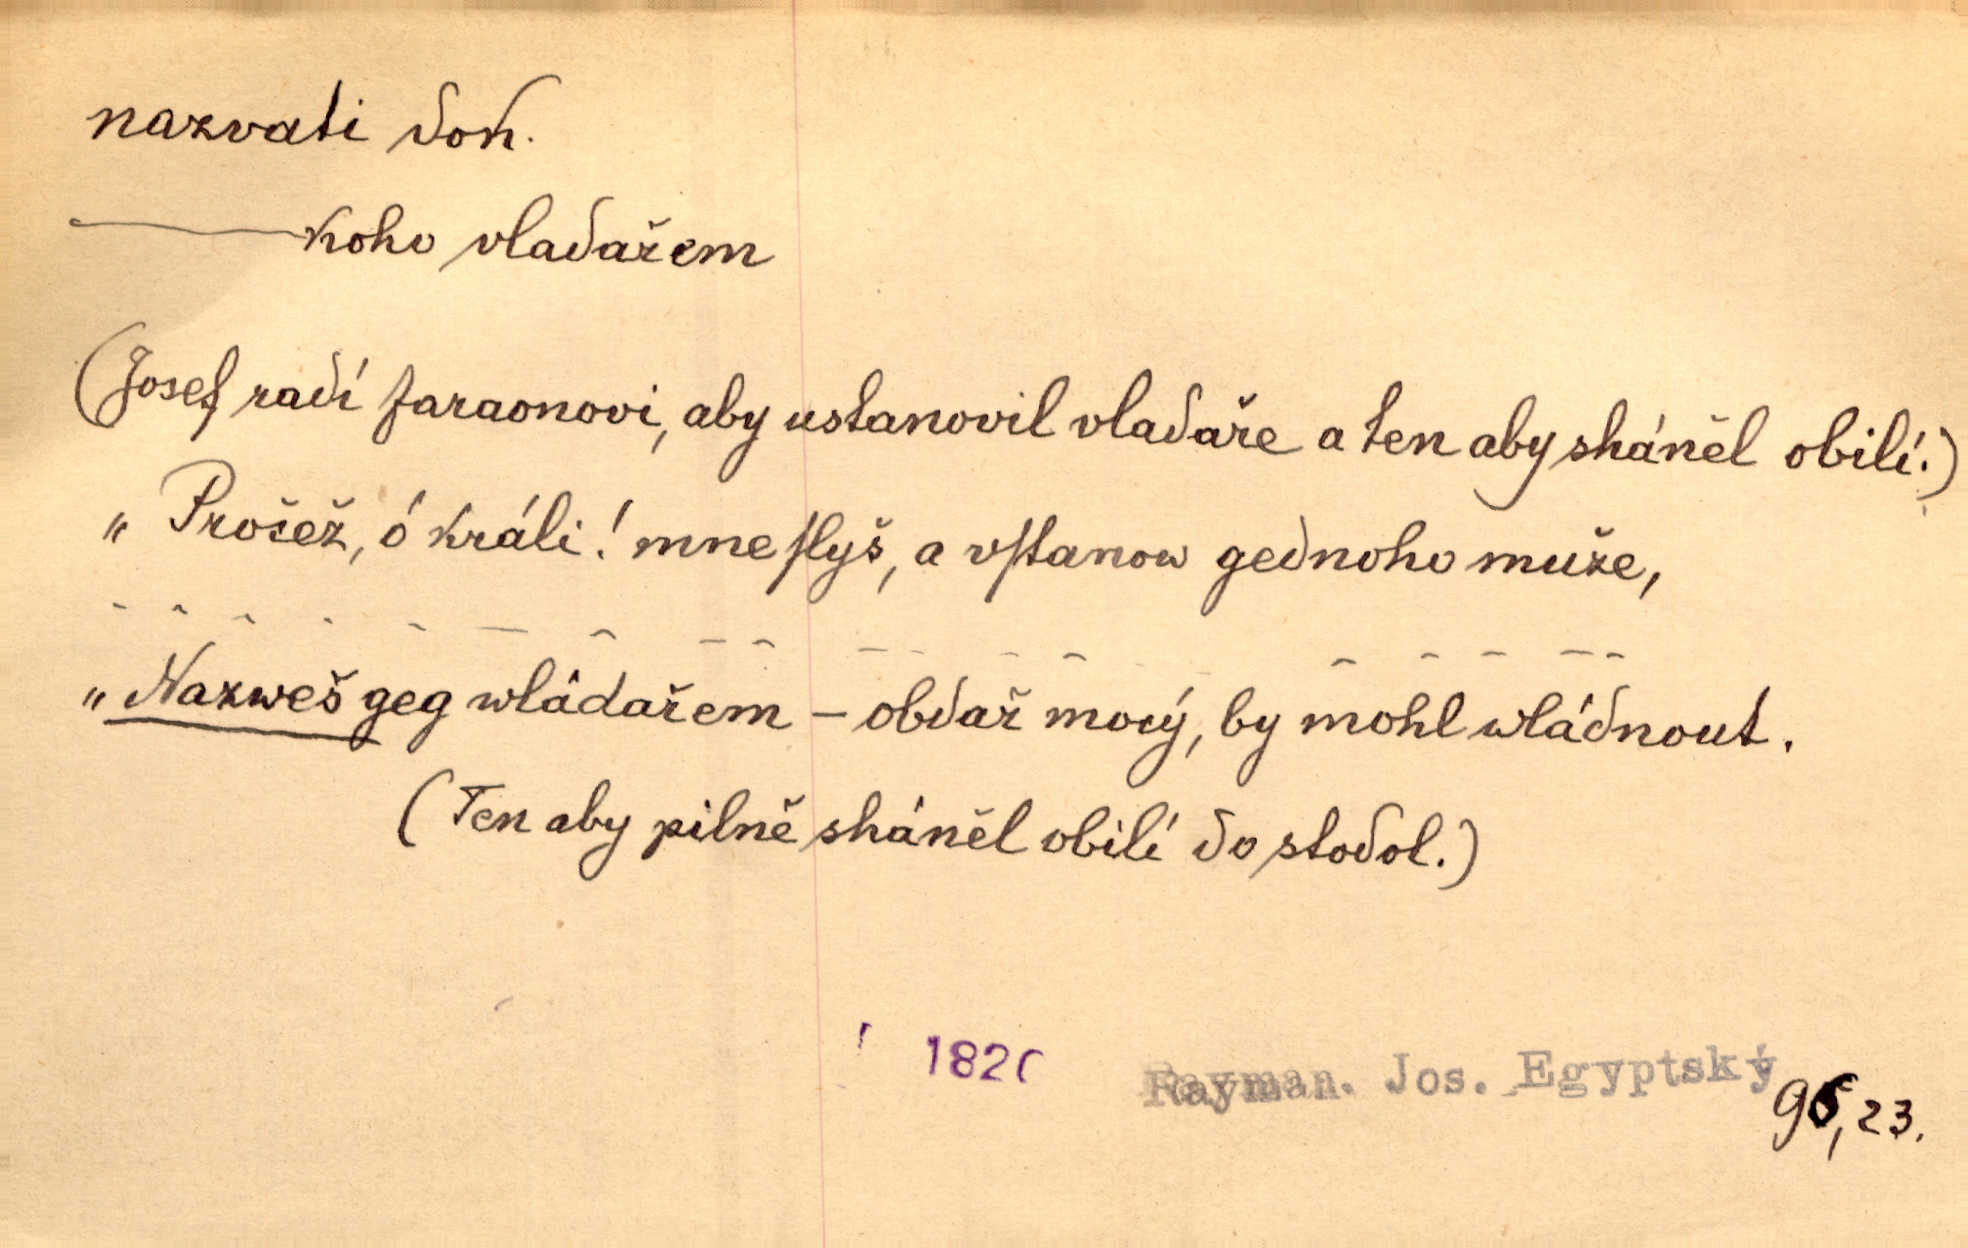 nazvati dok.
koho vladařem
(Josef radí faraonovi, aby ustanovil vladaře a ten aby sháněl obilí.)
„ Prošež, ó králi! mne ſlyš, a vſtanow gednoho muže,
„ Nazweš geg wládařem – obdař mocý, by mohl wládnout.
(Ten aby pilně sháněl obilí do stodol.)
Rayman. Jos. Egyptský
23.